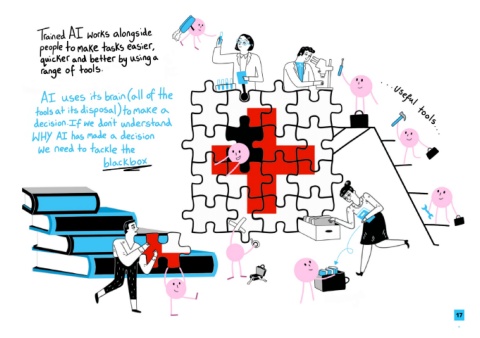 Trained AI works alongside
people to make tasks easier,
quicker and better by using a
range of tools.
AI uses its brain (all of the
tools at its disposal) to make a
decision. If we don't understand
WHY AI has made a decision
we need to tackle the
blackbox
...Useful tools...
17